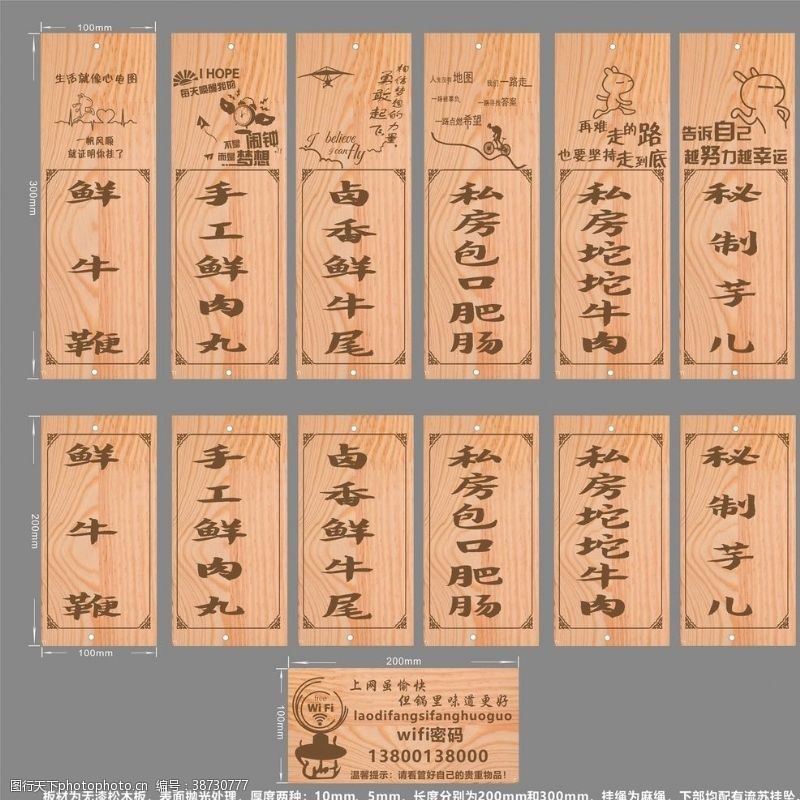 100mm
300mm
生活就像心电图
一帆风顺
就证明你挂了
鲜牛鞭
I HOPE
每天唤醒我的
不是
闹钟
而是
梦想
手工鲜肉丸
相信梦想的力量,
勇敢起飞
I believe
I can fly
卤香鲜牛尾
人生没有地图
我们一路走
一路被辜负
一路寻找答案
一路点燃希望
私房包口肥肠
再难
走的路
也要坚持走到底
私房坨坨牛肉
告诉自己
越努力越幸运
秘制芋儿
200mm
鲜牛鞭
手工鲜肉丸
卤香鲜牛尾
私房包口肥肠
私房坨坨牛肉
秘制芋儿
100mm
200mm
100mm
free
WiFi
上网虽愉快
但锅里味道更好
laodifangsifanghuoguo
wifi密码
13800138000
温馨提示：请看管好自己的贵重物品!
图行天下 photophoto.cn 编号：38730777
板材为无漆松木板，表面抛光处理，厚度两种：10mm、5mm，长度分别为200mm和300mm，挂绳为麻绳，下部均配有流苏挂坠